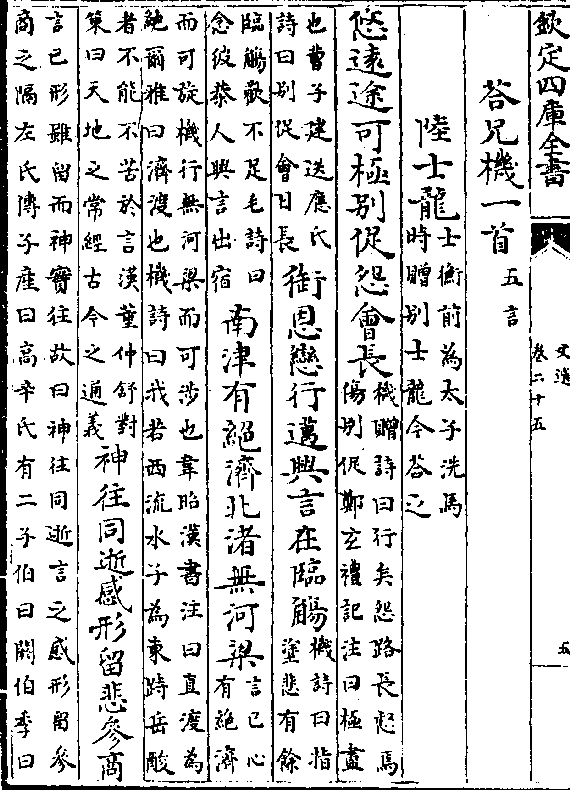 欽定四庫全書
文選
卷二十五
五
荅兄機一首
五言
陸士龍
士衡前為太子洗馬
時贈别士龍今荅之
悠逺途可極别促怨會長
機贈詩曰行矣怨路長惄焉
傷别促鄭玄禮記注曰極盡
也曹子建送應氏
詩曰别促會日長
銜恩戀行邁興言在臨觴
機詩曰指
塗悲有餘
臨觴歡不足毛詩曰
念彼恭人興言出宿
南津有絕濟北渚無河梁
言已心
有絕濟
而可旋機行無河梁而可涉也韋昭漢書注曰直渡為
絶爾雅曰濟渡也機詩曰我若西流水子為東跱岳酸
者不能不苦於言漢董仲舒對
策曰天地之常經古今之通義
神往同逝感形留悲參商
言已形雖留而神實往故曰神往同逝言之感形留參
商之隔左氏傳子産曰高辛氏有二子伯曰閼伯季曰